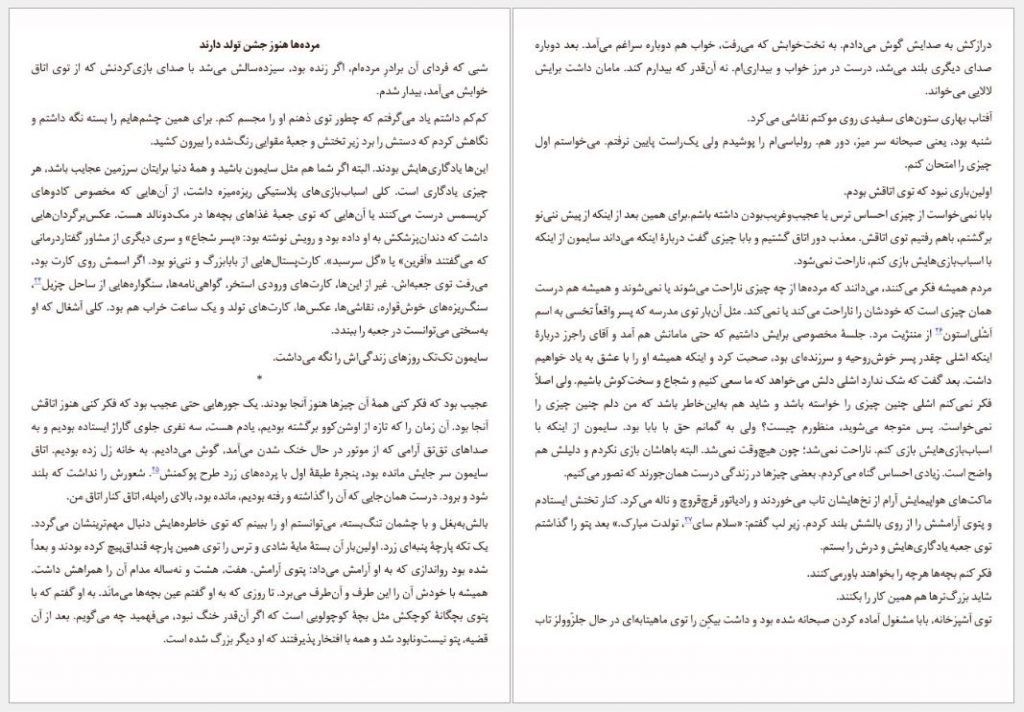 مرده‌ها هنوز جشن تولد دارند
شبی که فردای آن برادرِ مرده‌ام، اگر زنده بود، سیزده‌سالش می‌شد با صدای بازی‌کردنش که از توی اتاق
خوابش می‌آمد، بیدار شدم.
کم‌کم داشتم یاد می‌گرفتم که چطور توی ذهنم او را مجسم کنم. برای همین چشم‌هایم را بسته نگه داشتم و
نگاهش کردم که دستش را برد زیر تختش و جعبهٔ مقوایی رنگ‌شده را بیرون کشید.
این‌ها یادگاری‌هایش بودند. البته اگر شما هم مثل سایمون باشید و همهٔ دنیا برایتان سرزمین عجایب باشد، هر
چیزی یادگاری است. کلی اسباب‌بازی‌های پلاستیکی ریزه‌میزه داشت، از آن‌هایی که مخصوص کادوهای
کریسمس درست می‌کنند یا آن‌هایی که توی جعبهٔ غذاهای بچه‌ها در مک‌دونالد هست. عکس‌برگردان‌هایی
داشت که دندان‌پزشکش به او داده بود و رویش نوشته بود: «پسر شجاع» و سری دیگری از مشاور گفتاردرمانی
که می‌گفتند «آفرین» یا «گل سرسبد». کارت‌پستال‌هایی از بابابزرگ و ننی‌نو بود. اگر اسمش روی کارت بود،
می‌رفت توی جعبه‌اش. غیر از این‌ها، کارت‌های ورودی استخر، گواهی‌نامه‌ها، سنگواره‌هایی از ساحل چزیل۲۴،
سنگ‌ریزه‌های خوش‌قواره، نقاشی‌ها، عکس‌ها، کارت‌های تولد و یک ساعت خراب هم بود. کلی آشغال که او
به‌سختی می‌توانست در جعبه را ببندد.
سایمون تک‌تک روزهای زندگی‌اش را نگه می‌داشت.
*
عجیب بود که فکر کنی همهٔ آن چیزها هنوز آنجا بودند. یک جورهایی حتی عجیب بود که فکر کنی هنوز اتاقش
آنجا بود. آن زمان را که تازه از اوشن‌کوو برگشته بودیم، یادم هست، سه نفری جلوی گاراژ ایستاده بودیم و به
صداهای تق‌تق آرامی که از موتور در حال خنک شدن می‌آمد، گوش می‌دادیم. به خانه زل زده بودیم. اتاق
سایمون سر جایش مانده بود، پنجرهٔ طبقهٔ اول با پرده‌های زرد طرح پوکمنش۲۵. شعورش را نداشت که بلند
شود و برود. درست همان‌جایی که آن را گذاشته و رفته بودیم، مانده بود، بالای راه‌پله، اتاق کنار اتاق من.
بالش‌به‌بغل و با چشمان تنگ‌بسته، می‌توانستم او را ببینم که توی خاطره‌هایش دنبال مهم‌ترینشان می‌گردد.
یک تکه پارچهٔ پنبه‌ای زرد. اولین‌بار آن بستهٔ مایهٔ شادی و ترس را توی همین پارچه قنداق‌پیچ کرده بودند و بعداً
شده بود رواندازی که به او آرامش می‌داد: پتوی آرامش. هفت، هشت و نه‌ساله مدام آن را همراهش داشت.
همیشه با خودش آن را این طرف و آن‌طرف می‌برد. تا روزی که به او گفتم عین بچه‌ها می‌ماند. به او گفتم که با
پتوی بچگانهٔ کوچکش مثل بچهٔ کوچولویی است که اگر آن‌قدر خنگ نبود، می‌فهمید چه می‌گویم. بعد از آن
قضیه، پتو نیست‌ونابود شد و همه با افتخار پذیرفتند که او دیگر بزرگ شده است.
درازکش به صدایش گوش می‌دادم. به تخت‌خوابش که می‌رفت، خواب هم دوباره سراغم می‌آمد. بعد دوباره
صدای دیگری بلند می‌شد، درست در مرز خواب و بیداری‌ام. نه آن‌قدر که بیدارم کند. مامان داشت برایش
لالایی می‌خواند.
آفتاب بهاری ستون‌های سفیدی روی موکتم نقاشی می‌کرد.
شنبه بود، یعنی صبحانه سر میز، دور هم. رولباسی‌ام را پوشیدم ولی یک‌راست پایین نرفتم. می‌خواستم اول
چیزی را امتحان کنم.
اولین‌باری نبود که توی اتاقش بودم.
بابا نمی‌خواست از چیزی احساس ترس یا عجیب‌وغریب‌بودن داشته باشم.برای همین بعد از اینکه از پیش ننی‌نو
برگشتم، باهم رفتیم توی اتاقش. معذب دور اتاق گشتیم و بابا چیزی گفت دربارهٔ اینکه می‌داند سایمون از اینکه
با اسباب‌بازی‌هایش بازی کنم، ناراحت نمی‌شود.
مردم همیشه فکر می‌کنند، می‌دانند که مرده‌ها از چه چیزی ناراحت می‌شوند یا نمی‌شوند و همیشه هم درست
همان چیزی است که خودشان را ناراحت می‌کند یا نمی‌کند. مثل آن‌بار توی مدرسه که پسر واقعاً تخسی به اسم
اَشلی‌استون۲۶ از مننژیت مرد. جلسهٔ مخصوصی برایش داشتیم که حتی مامانش هم آمد و آقای راجرز دربارهٔ
اینکه اشلی چقدر پسر خوش‌روحیه و سرزنده‌ای بود، صحبت کرد و اینکه همیشه او را با عشق به یاد خواهیم
داشت. بعد گفت که شک ندارد اشلی دلش می‌خواهد که ما سعی کنیم و شجاع و سخت‌کوش باشیم. ولی اصلاً
فکر نمی‌کنم اشلی چنین چیزی را خواسته باشد و شاید هم به‌این‌خاطر باشد که من دلم چنین چیزی را
نمی‌خواست. پس متوجه می‌شوید، منظورم چیست؟ ولی به گمانم حق با بابا بود. سایمون از اینکه با
اسباب‌بازی‌هایش بازی کنم. ناراحت نمی‌شد؛ چون هیچ‌وقت نمی‌شد. البته باهاشان بازی نکردم و دلیلش هم
واضح است. زیادی احساس گناه می‌کردم. بعضی چیزها در زندگی درست همان‌جورند که تصور می‌کنیم.
ماکت‌های هواپیمایش آرام از نخ‌هایشان تاب می‌خوردند و رادیاتور قرچ‌قروچ و ناله می‌کرد. کنار تختش ایستادم
و پتوی آرامشش را از روی بالشش بلند کردم. زیر لب گفتم: «سلام سای۲۷، تولدت مبارک.» بعد پتو را گذاشتم
توی جعبه یادگاری‌هایش و درش را بستم.
فکر کنم بچه‌ها هرچه را بخواهند باورمی‌کنند.
شاید بزرگ‌ترها هم همین کار را بکنند.
توی آشپزخانه، بابا مشغول آماده کردن صبحانه شده بود و داشت بیکِن را توی ماهیتابه‌ای در حال جلزّوولز تاب